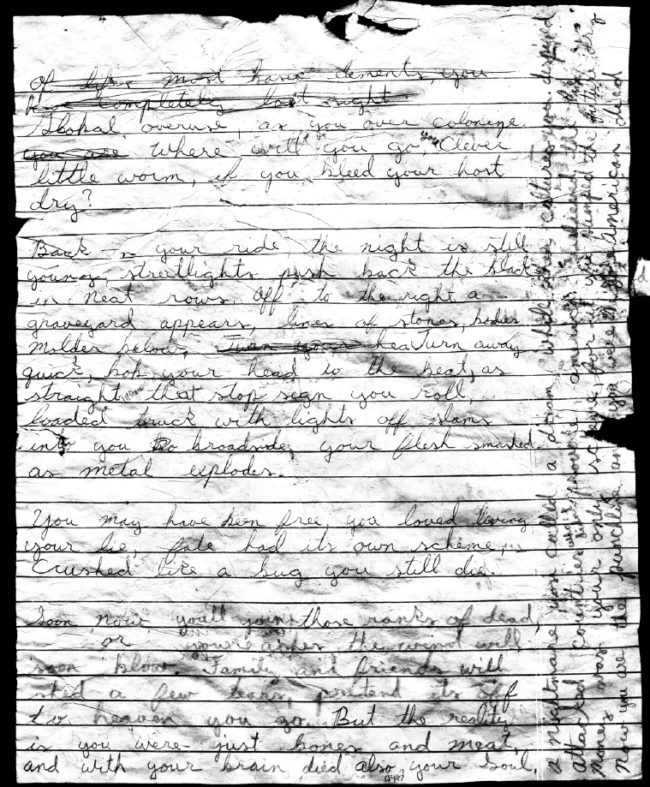 Of lifes most basic elements, you
have completely lost sight
Global overuse, as you over colonize
you are Where will you go, you Clever
little worm, if you bleed your host
dry?
Back in your ride, the night is still
young, streetlights push back the black
in neat rows. Off to the right a
graveyard appears, lines of stones, bodies
molder below. Turn your hea Turn away
quick, bob your head to the beat, as
straight that stop sign you roll,
loaded truck with lights off slams
into you broadside, your flesh smashed
as metal explodes.
You may have been free, you loved living
your lie, fate had its own scheme,
crushed like a bug you still die.
Soon now, you'll join those ranks of dead,
or your ashes the wind will
soon blow. Family and friends will
shed a few tears, pretend its off
to heaven you go. But the reality
is you were just bones and meat,
and with your brain died also your soul.
a nightmare you called a dream, while other cultures you despised
attacked countries
money was your only
now you are the punchline, American dead